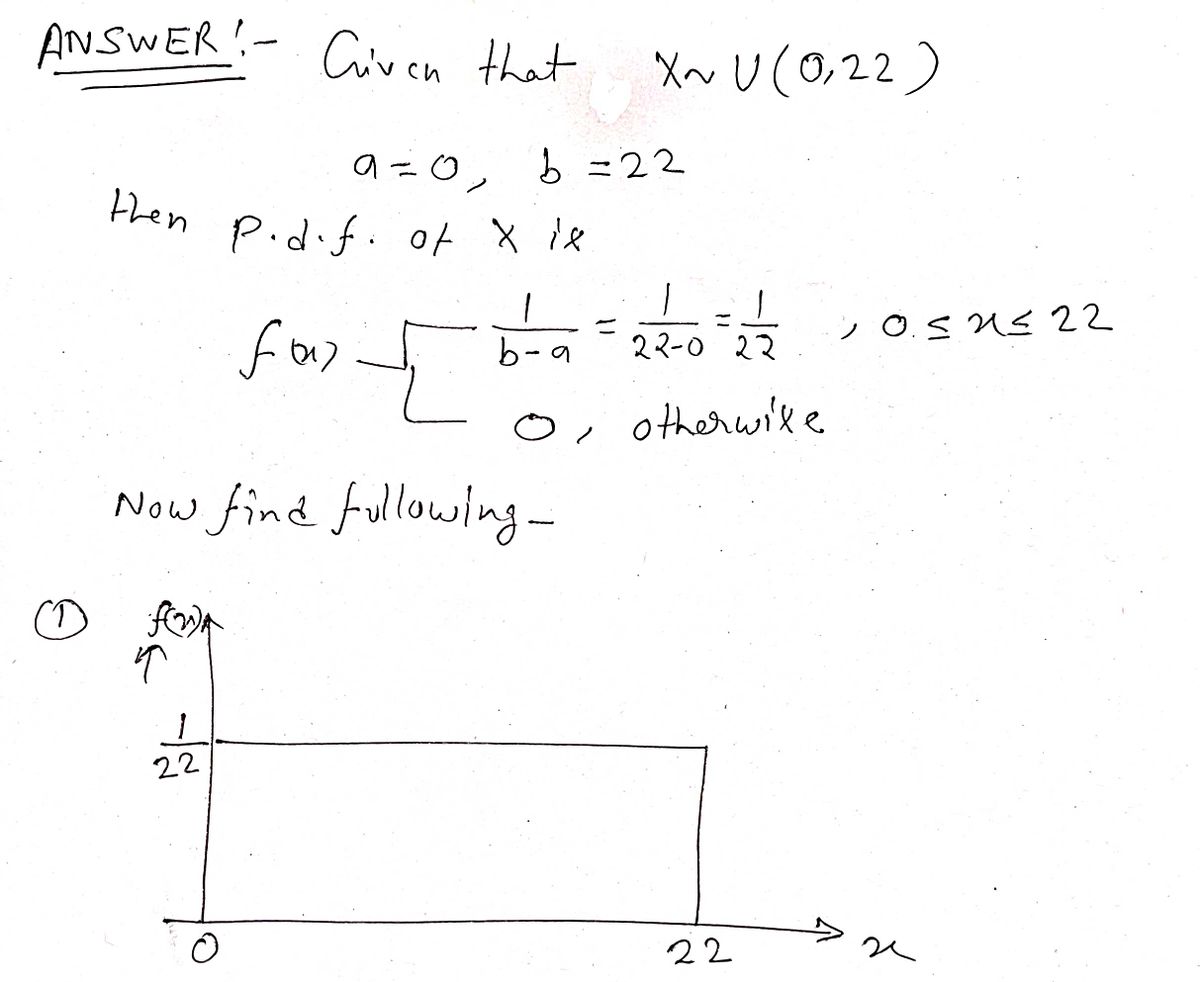 ANSWER:- Given that X~ U(0,22)
a=0, b=22
then P.d.f. of X is
f(x) 1/b-a = 1/22-0 = 1/22 , 0 ≤ x ≤ 22
0, otherwise
Now find following-
① f(x)
↑
1/22
0 22 x